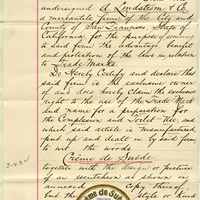 undersigned A. Lindstrom & Co.
a mercantile firm of the City and
County of San Francisco State of
California for the purpose of securing
to said firm the advantage, benefit
and protection of the laws in relation
to Trade Marks
Do Hereby Certify and declare that
said firm is the exclusive owner
of and does hereby claim the exclusive
right to the use of the Trade Mark
and name for a preparation for
the Complexion and Toilet Use, and
which said article is manufactured,
put up and dealt in by said firm
to wit: the words
Crème de Suède
together with the design or picture
of an escutcheon as shown on
annexed copy thereof
but the style or kind
Crème de Suède